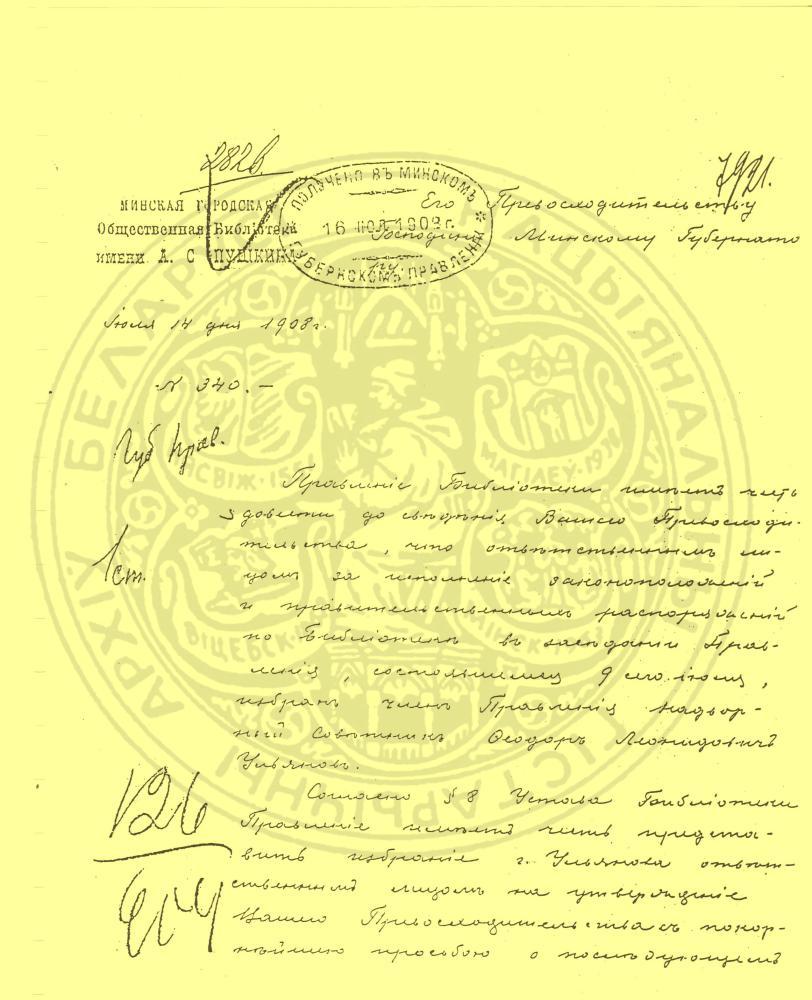 282 в.
7921.
МИНСКАЯ ГОРОДСКАЯ
Общественная Библіотека
имени А. С ПУШКИНА
ПОЛУЧЕНО ВЪ МИНСКОМЪ
16 ИЮЛ 1908 г.
ГУБЕРНСКОМЪ ПРАВЛЕНІИ
Его Превосходительству
Господину Минскому Губернато
ру.
Іюля 14 дня 1908 г.
N 340.-
Губ Прав.
Правленіе Библіотеки имѣетъ честь
довести до свѣдѣнія Вашего Превосходи-
тельства, что отвѣтственнымъ ли-
1 ст.
цомъ за исполненіе законоположеній
и правительственныхъ распоряженій
по Библіотекѣ въ засѣданіи Прав-
ленія, состоявшемся 9 сего іюля,
избранъ членъ Правленія Надвор-
ный Совѣтникъ Ѳеодоръ Леонидовичъ
Ульяновъ.
Согласно § 8 Устава Библіотеки
126
Правленіе имѣетъ честь предста-
вить избраніе г. Ульянова отвѣт-
ственнымъ лицомъ на утвержденіе
Вашего Превосходительства съ покор-
нѣйшею просьбою о послѣдующемъ
БЕЛАРУСІ
АРХІЎ
ГІСТАРЫЧНЫ
НАЦЫЯНАЛЬНЫ
ВІЦЕБСК